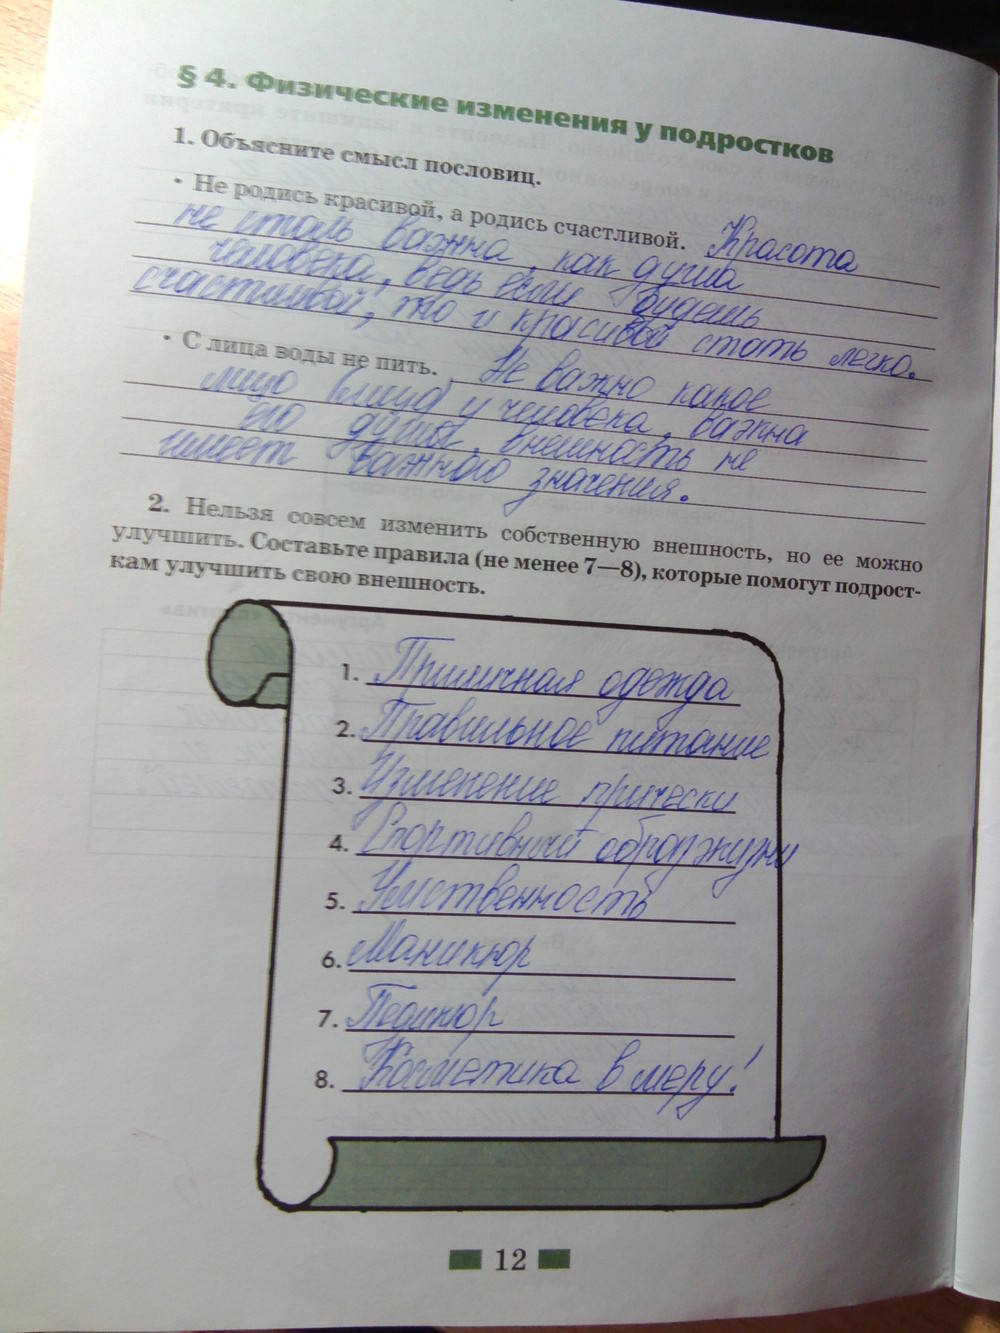 § 4. Физические изменения у подростков
1. Объясните смысл пословиц.
• Не родись красивой, а родись счастливой. Красота
не столь важна, как душа
человека, ведь если будешь
счастливой, то и красивой стать легко.
• С лица воды не пить. Не важно какое
лицо у человека, важна
его душа, внешность не
имеет важного значения.
2. Нельзя совсем изменить собственную внешность, но ее можно
улучшить. Составьте правила (не менее 7—8), которые помогут подрост-
кам улучшить свою внешность.
1. Приличная одежда
2. Правильное питание
3. Изменение прически
4. Спортивный образ жизни
5. Умственность
6. Маникюр
7. Педикюр
8. Косметика в меру!
12